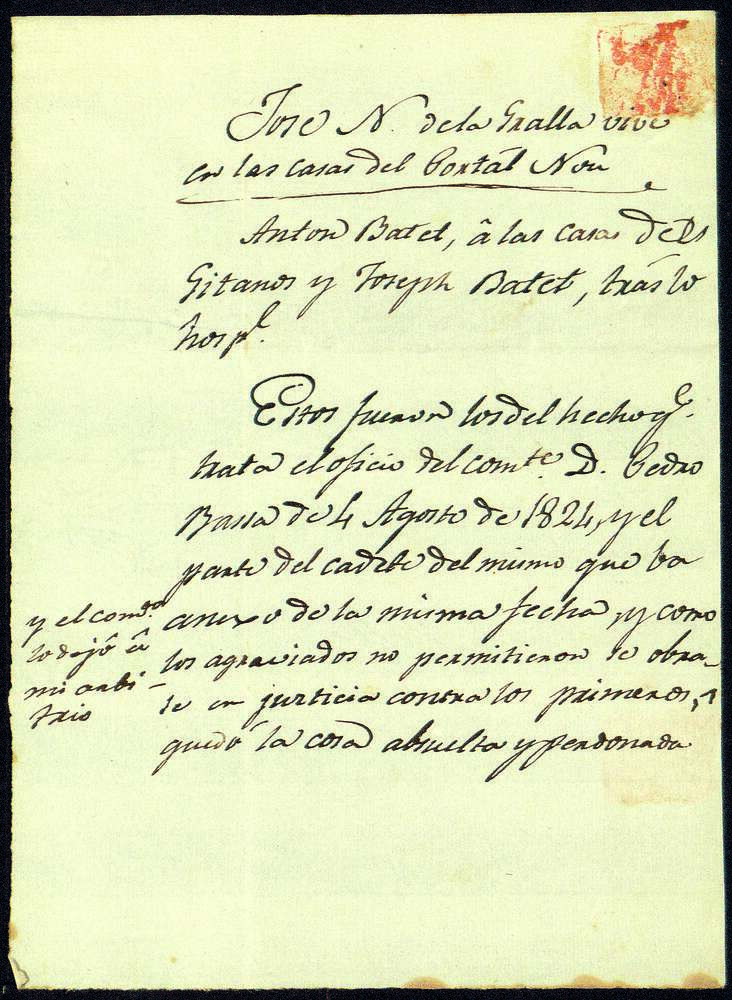 Jose N. de la Gralla vive
en las casas del Portál Nou
Anton Batet, â las casas dels
Gitanos y Joseph Batet, trás lo
hospl.
Estos fueron los del hecho qe.
trata el oficio del comte. D. Pedro
Bassa de 4 Agosto de 1824, y el
parte del cadete del mismo que ba
anexo de la misma fecha, y como
los agraviados no permitieron se obra-
se en justicia contra los primeros,
quedó la cosa absuelta y perdonada
y el comte.
lo dejó â
mi arbi-
trio